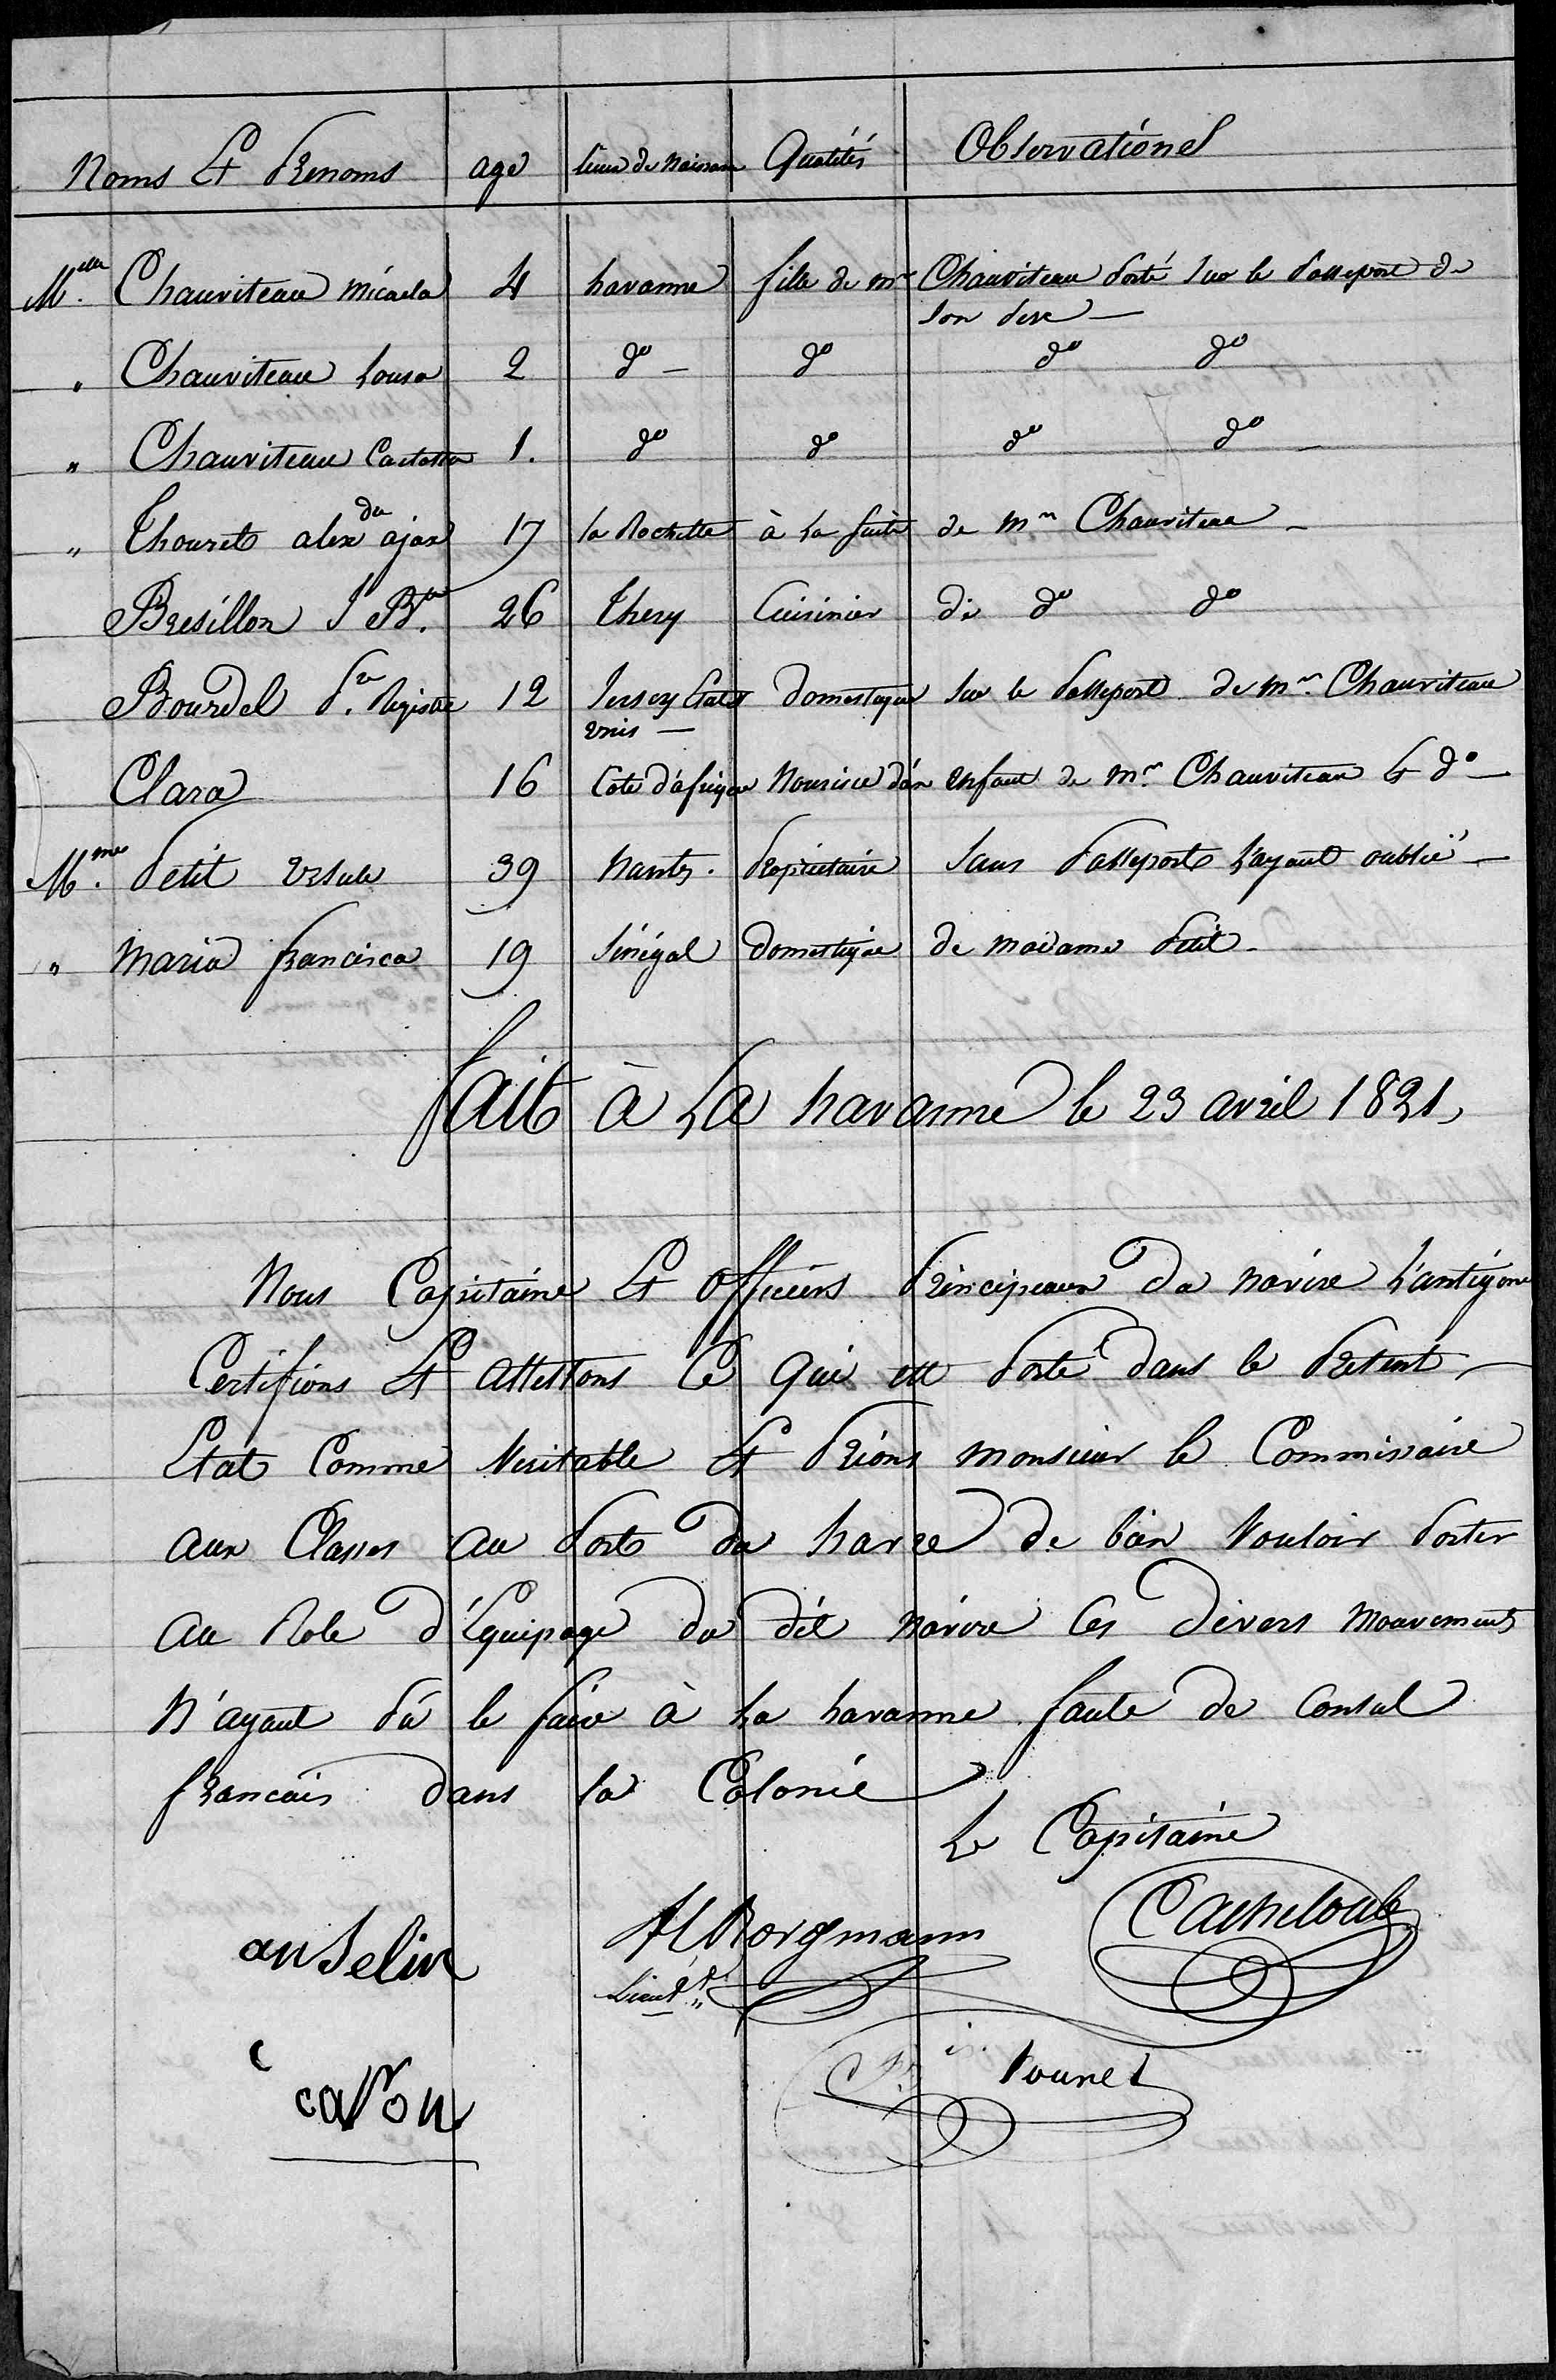 Noms Et Prenoms age Lieux de Naissance Qualités Observations
Melle Chauviteau Micaela 4 havanne fille de mr Chauviteau Porté Sur le Passeport de
Son Pere —
" Chauviteau Louisa 2 do — do do do
" Chauviteau 1. do do do do —
" Thouret alexdre ajax 17 la Rochelle à La Suite de mr Chauviteau —
Bresillon J Bte 26 Thery Cuisinier de do do
Bourdel Pre 12 Jersey Etats Domestique Sur le Passeport de mr. Chauviteau
unis —
Clara 16 Cote d'afrique Nourice d'un enfant de mr. Chauviteau Et do —
Mme. Petit Ursule 39 Nantes. Propriétaire Sans Passeport L'ayant oublié —
" Maria francisca 19 Sénégal Domestique de madame Petit —
fait à La havanne le 23 avril 1821,
Nous Capitaine Et Officiers Principeaux du navire L'antigone
Certifions Et Attestons Ce Qui est Porté dans le Present
Etat Comme Veritable Et Prions monsieur le Commissaire
aux Classes au Port du havre de bien Vouloir Porter
au Role d'Equipage du dit navire Ces divers Mouvements
N'ayant Pû le faire à La havanne faute de Consul
francais dans la Colonie
Le Capitaine
anselin Borgmann Cacheloub
Lieut.
caron Vounet